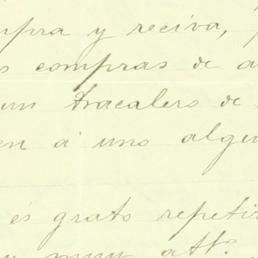 mpra y reciva,
s compras de a
un tracalero de
en á uno algu
es grato repeti
muy att.